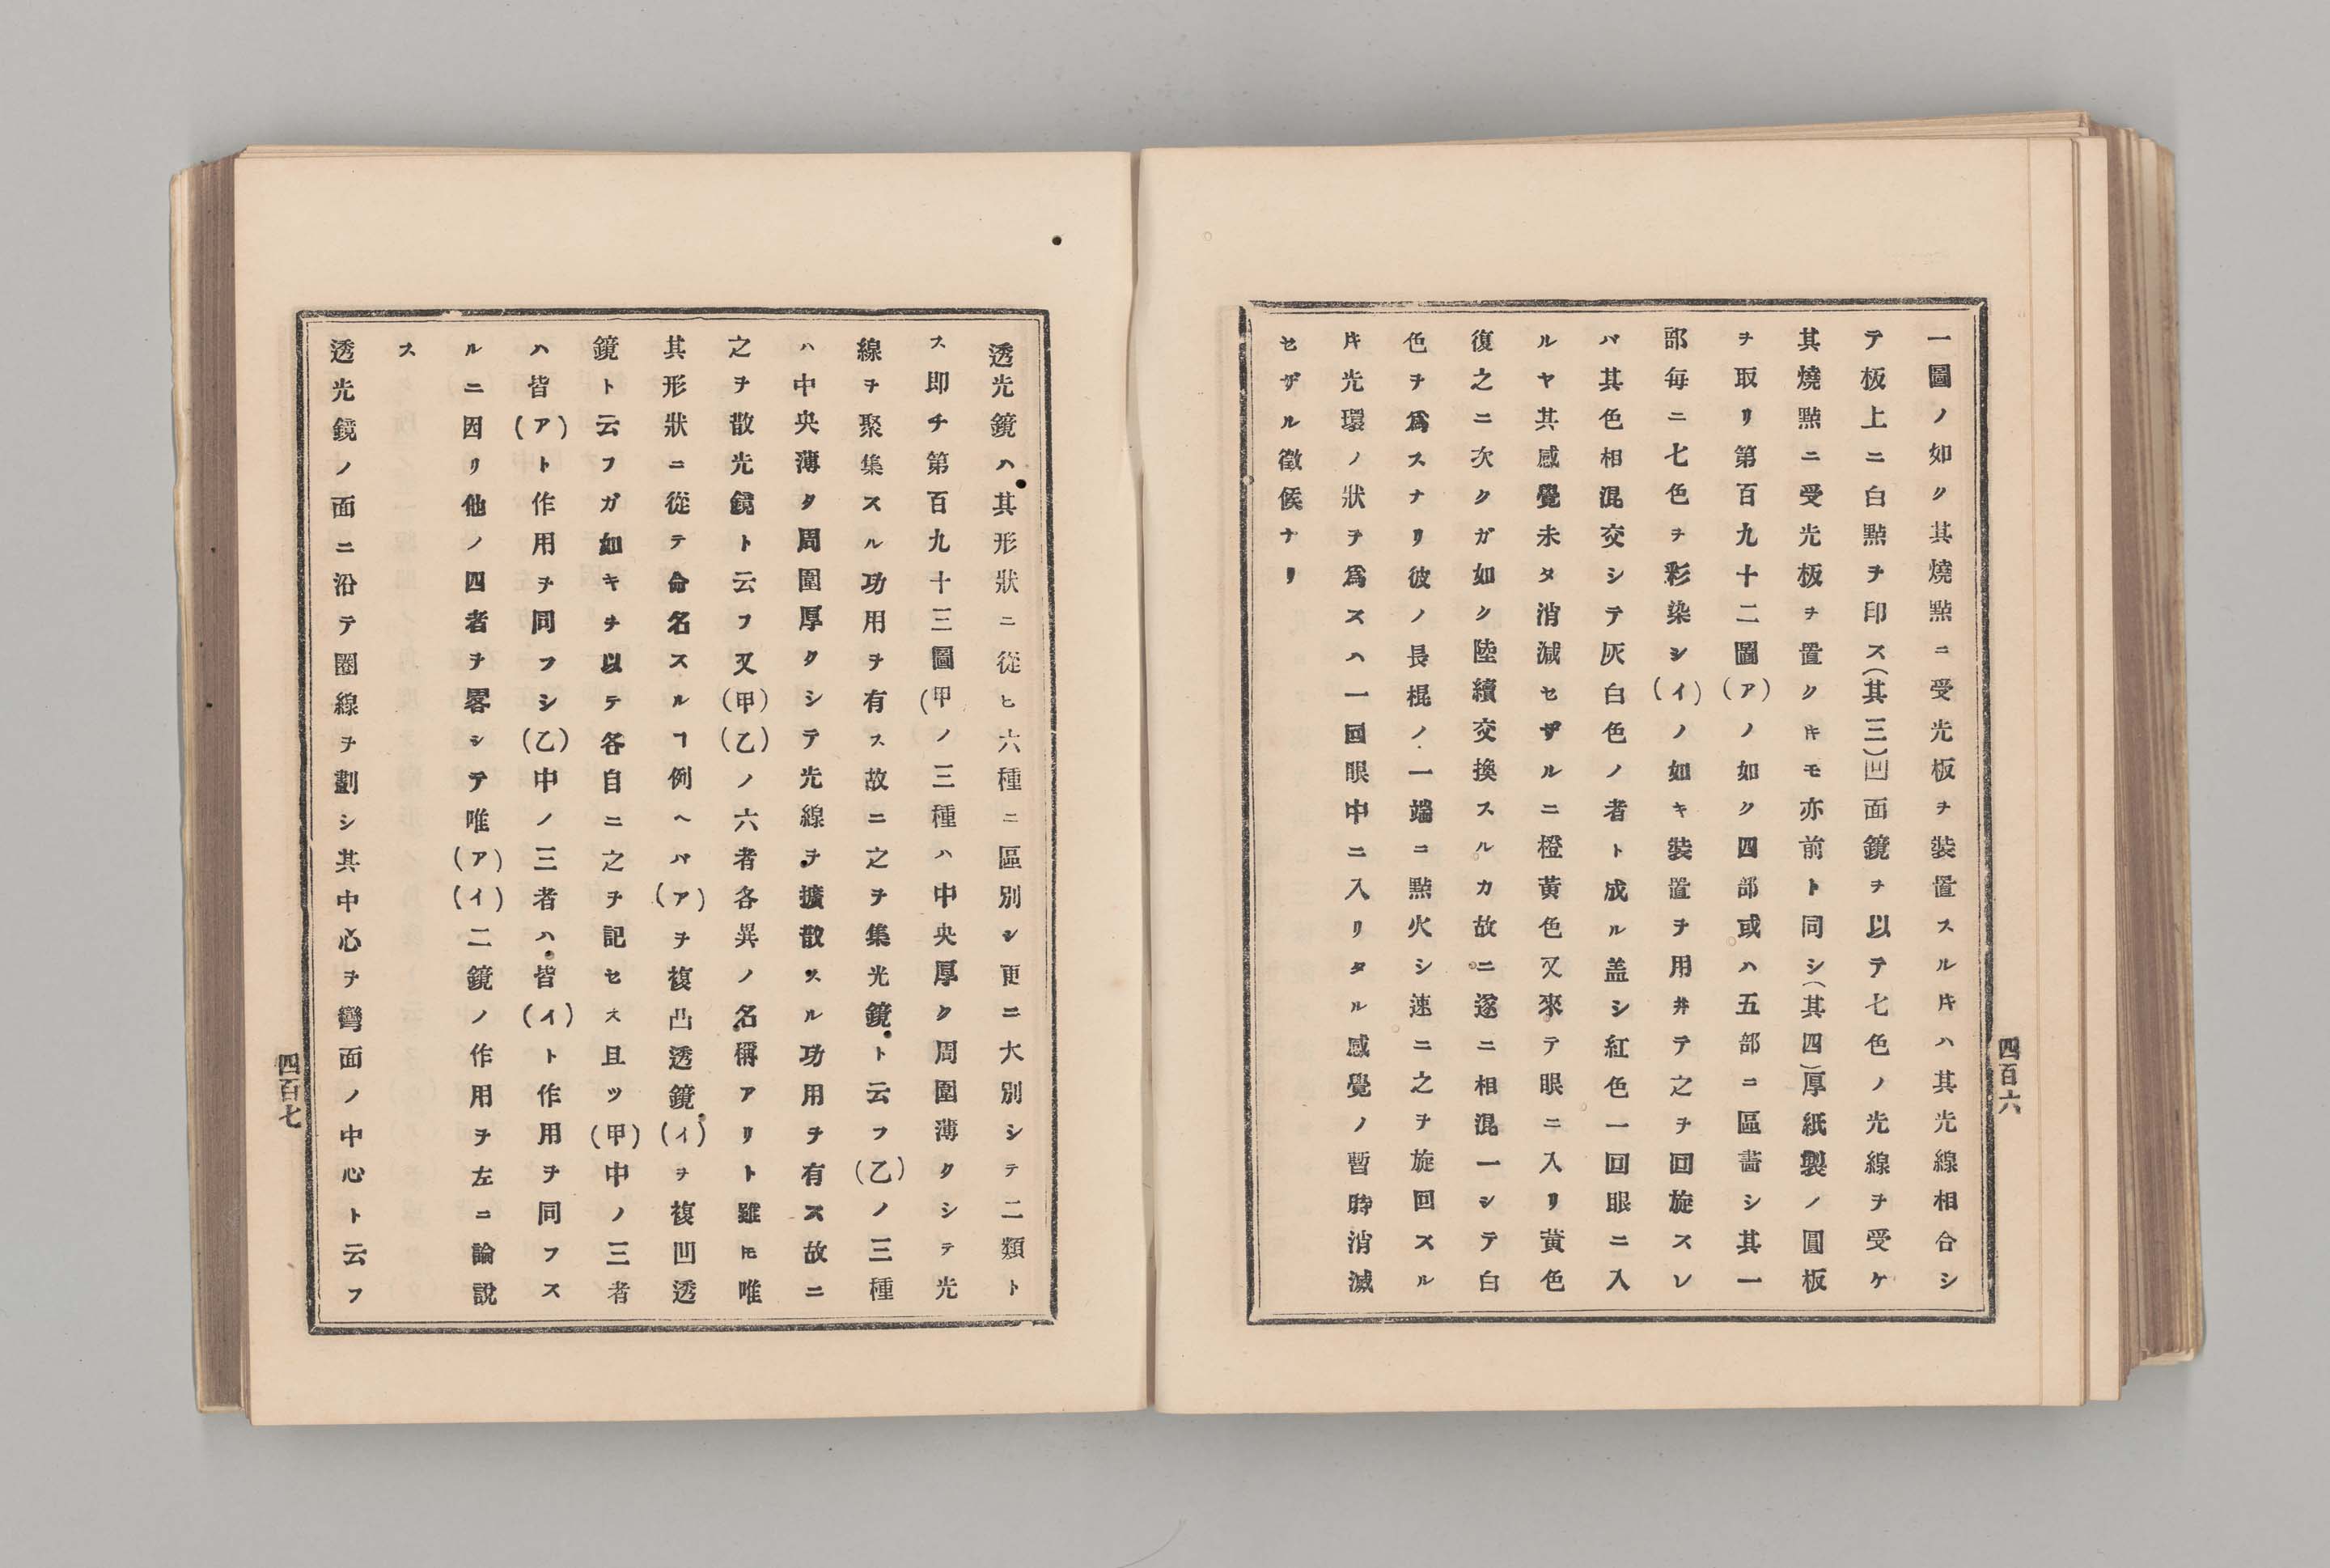 一圖ノ如ク其燒點ニ受光板ヲ裝置スル𪜈ハ其光線相合シ
テ板上ニ白點ヲ印ス(其三)凹面鏡ヲ以テ七色ノ光線ヲ受ケ
其燒點ニ受光板ヲ置クモ亦前ト同シ(其四)厚紙製ノ圓板
ヲ取リ第百九十二圖(ア)ノ如ク四部或ハ五部ニ區畵シ其一
部每ニ七色ヲ彩染シ(イ)ノ如キ裝置ヲ用井テ之ヲ回旋スレ
バ其色相混交シテ灰白色ノ者ト成ル盖シ紅色一回眼ニ入
ルヤ其感覺未タ消滅セザルニ橙黃色又來テ眼ニ入リ黃色
復之ニ次クガ如ク陸續交換スルカ故ニ遂ニ相混一シテ白
色ヲ爲スナリ彼ノ長棍ノ一端ニ點火シ速ニ之ヲ旋回スル
光環ノ狀ヲ爲スハ一回眼中ニ入リタル感覺ノ暫時消滅
セザル徵候ナリ
四百六
透光鏡ハ其形狀ニ從ヒ六種ニ區別シ更ニ大別シテ二類ト
ス卽チ第百九十三圖(甲ノ三種ハ中央厚ク周圍薄クシテ光
線ヲ聚集スル功用ヲ有ス故ニ之ヲ集光鏡ト云フ(乙)ノ三種
ハ中央薄タ周圍厚クシテ光線ヲ擴散スル功用ヲ有ス故ニ
之ヲ散光鏡ト云フ又(甲)(乙)ノ六者各異ノ名稱アリト雖𪜈唯
其形狀ニ從テ命名スルヿ例ヘバ(ア)ヲ複凸透鏡(イ)ヲ複凹透
鏡ト云フガ如キヲ以テ各自ニ之ヲ記セス且ツ(甲)中ノ三者
ハ皆(ア)ト作用ヲ同フシ(乙)中ノ三者ハ皆(イ)ト作用ヲ同フス
ルニ因リ他ノ四者ヲ畧シテ唯(ア)(イ)二鏡ノ作用ヲ左ニ論說
ス
透光鏡ノ面ニ沿テ圈線ヲ劃シ其中心ヲ彎面ノ中心ト云フ
四百七